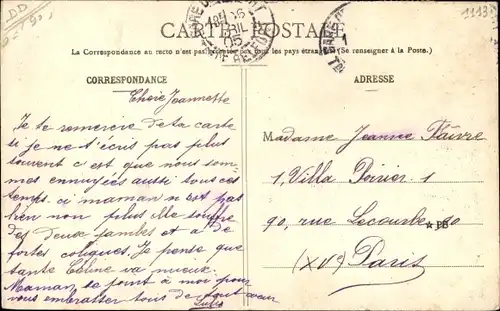 DD
1113
CARTE POSTALE
La Correspondance au recto n'est pas acceptée par tous les pays étrangers (Se renseigner à la Poste.)
CORRESPONDANCE
ADRESSE
Chère Jeannette
Je te remercie de ta carte
si je ne t'écris pas plus
souvent c'est que nous som-
mes ennuyées aussi tous ces
temps. ci maman n'est pas
bien non plus elle souffre
des deux jambes et a de
fortes coliques. Je pense que
tante Céline va mieux.
Maman se joint à moi pour
vous embrasser tous de tout cœur
Madame Jeanne Faivre
1, Villa Poirier. 1
90, rue Lecourbe 90
★ PB
(XVe) Paris